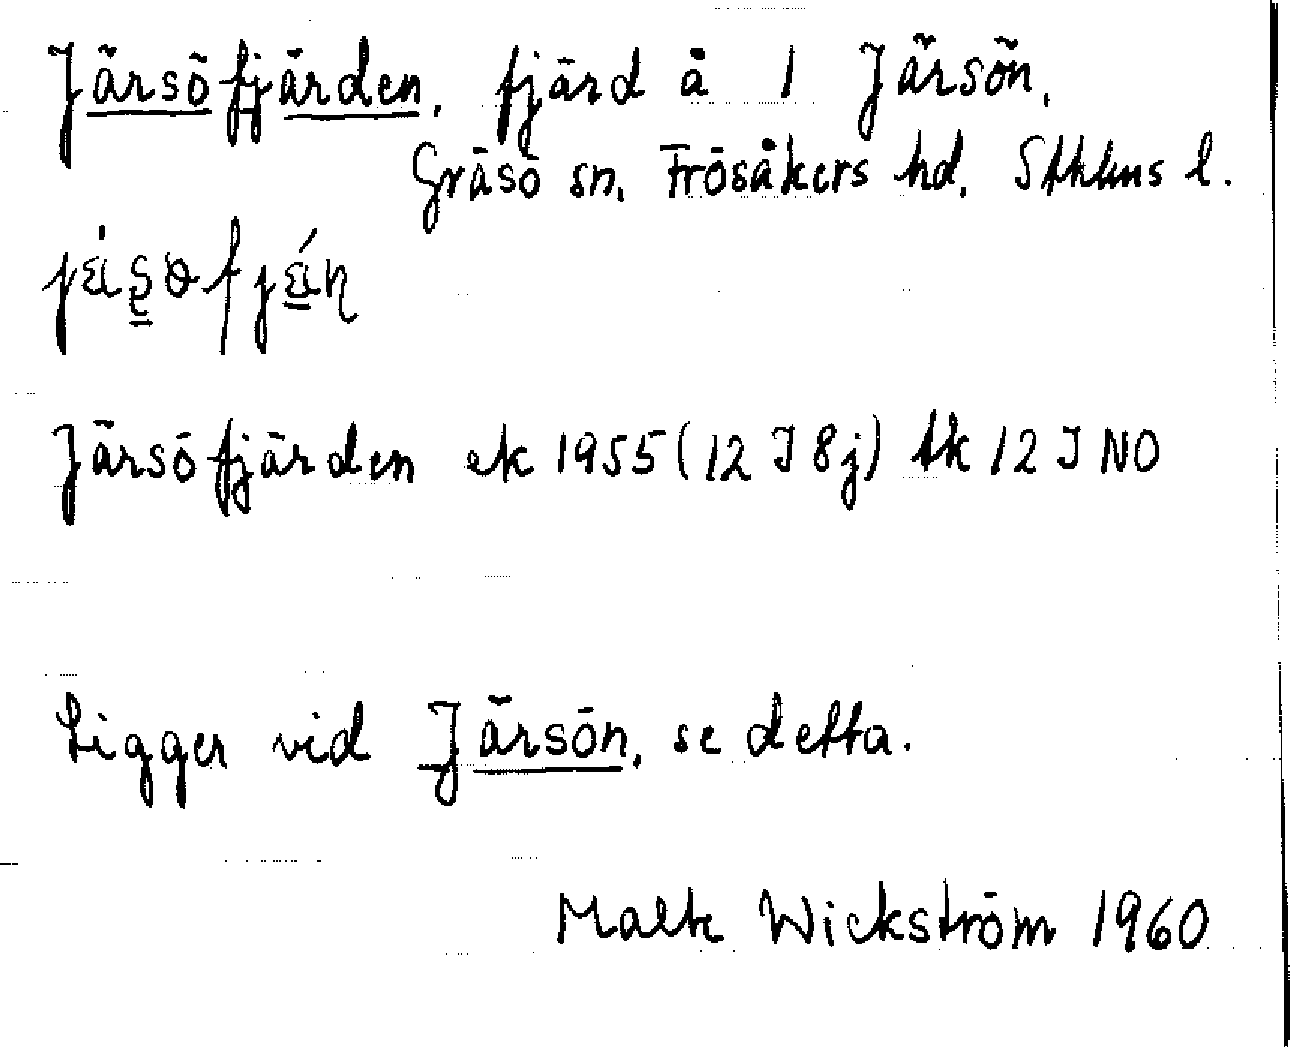 Järsöfjärden, fjärd å 1 Järsön,
Gräsö sn, Frösåkers hd, Sthlms l.
Järsöfjärden ek 1955 (12 J 8j) tk 12 J NO
Ligger vid Järsön, se detta.
Malte Wickström 1960